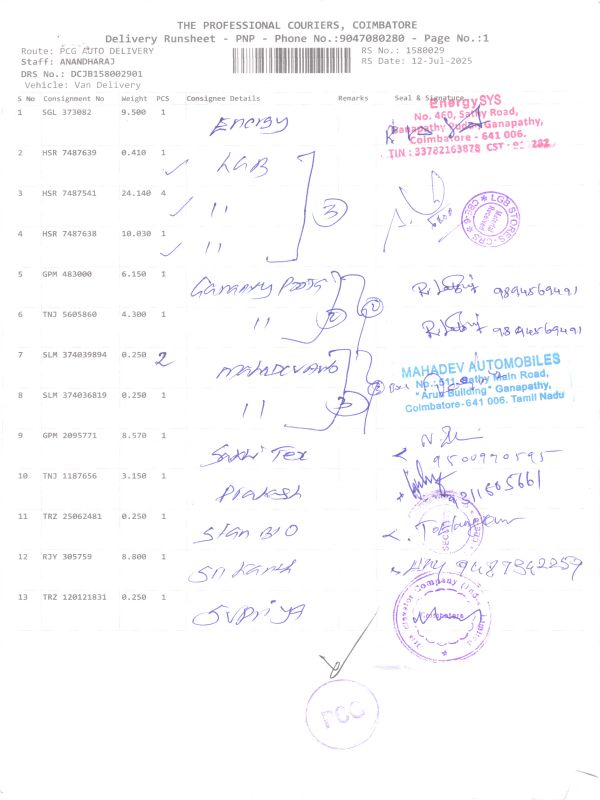 THE PROFESSIONAL COURIERS, COIMBATORE
Delivery Runsheet - PNP - Phone No.:9047080280 - Page No.:1
Route: PCG AUTO DELIVERY
RS No.: 1580029
Staff: ANANDHARAJ
RS Date: 12-Jul-2025
DRS No.: DCJB158002901
Vehicle: Van Delivery
S No Consignment No Weight PCS Consignee Details Remarks Seal & Signature
1 SGL 373082 9.500 1 Energy
EnergySYS
No. 460, Sathy Road,
Ganapathy Pudur, Ganapathy,
Coimbatore - 641 006.
TIN : 33782163878 CST
2 HSR 7487639 0.410 1 LGB
3 HSR 7487541 24.140 4 "
3
LGB STORES-CRS
Material Received
4 HSR 7487638 10.030 1 "
5 GPM 483000 6.150 1 9894569491
6 TNJ 5605860 4.300 1 " 2 9894569491
7 SLM 374039894 0.250 1 2
MAHADEV AUTOMOBILES
No.:511, Sathy Main Road,
"Arun Building" Ganapathy,
Coimbatore-641 006. Tamil Nadu
8 SLM 374036819 0.250 1 "
9 GPM 2095771 8.570 1 Sakhi Tex
9500970595
10 TNJ 1187656 3.150 1 Prakash
11 TRZ 25062481 0.250 1 Stan BIO
12 RJY 305759 8.800 1 Sri Kanth
13 TRZ 120121831 0.250 1 Supriya
Elevator Company (India) Limited
Coimbatore
PCG